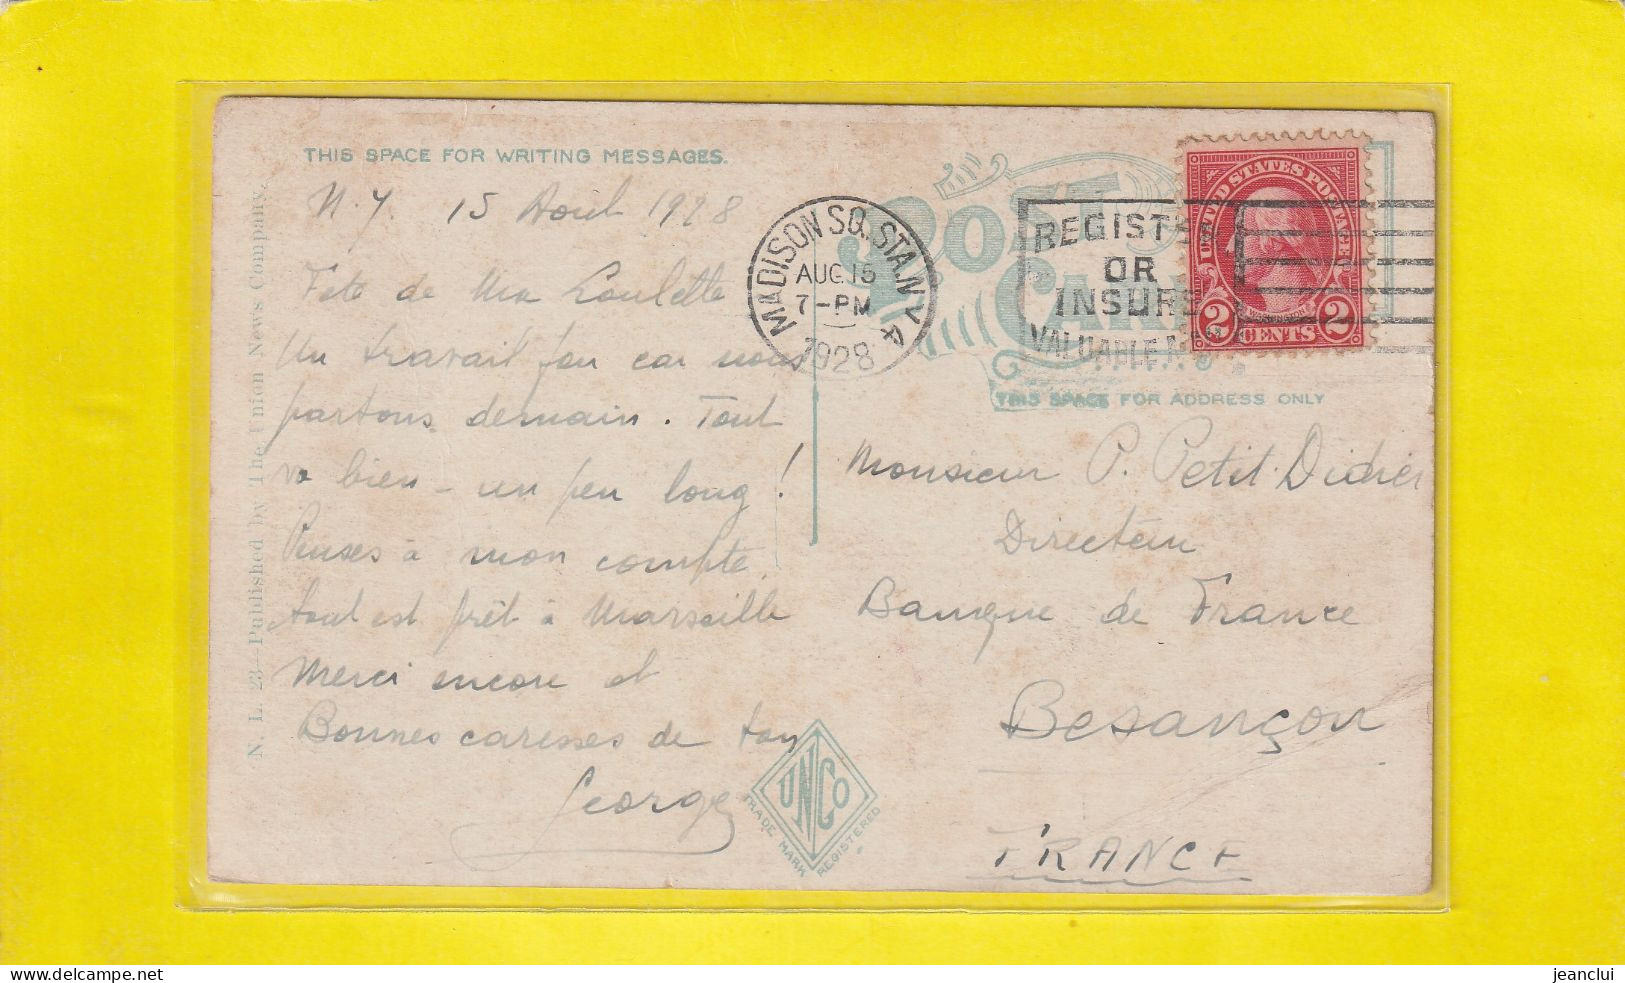 THIS SPACE FOR WRITING MESSAGES.
N.Y. 15 Aout 1928
Fête de Ma Loulette
Un travail fou car nous
partons demain. Tout
va bien - un peu long!
Penses à mon compte
tout est prêt à Marseille
Merci encore et
Bonnes caresses de ton
George
N. L. 23—Published by The Union News Company.
MADISON SQ. STA. N.Y.
AUG 15
7-PM
1928
4
POST
CARD
REGISTER
OR
INSURE
VALUABLE
UNITED STATES POSTAGE
WASHINGTON
2 CENTS 2
THIS SPACE FOR ADDRESS ONLY
Monsieur P. Petit-Didier
Directeur
Banque de France
Besançon
FRANCE
UNCo
TRADE MARK REGISTERED
delcampe.net
jeanclui